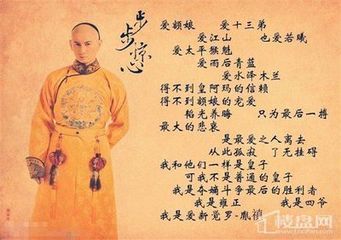 步步惊心
爱额娘 爱十三弟
爱江山 也爱若曦
爱太平猴魁
爱雨后青蓝
爱水泽木兰
得不到皇阿玛的信赖
得不到额娘的宠爱
韬光养晦 只为最后一搏
最大的悲哀
是最爱之人离去
从此孤寂 了无挂碍
我和他们一样是皇子
可我不是普通的皇子
我是夺嫡斗争最后的胜利者
我是雍正 我是四爷
我是爱新觉罗·胤禛
楼盘网